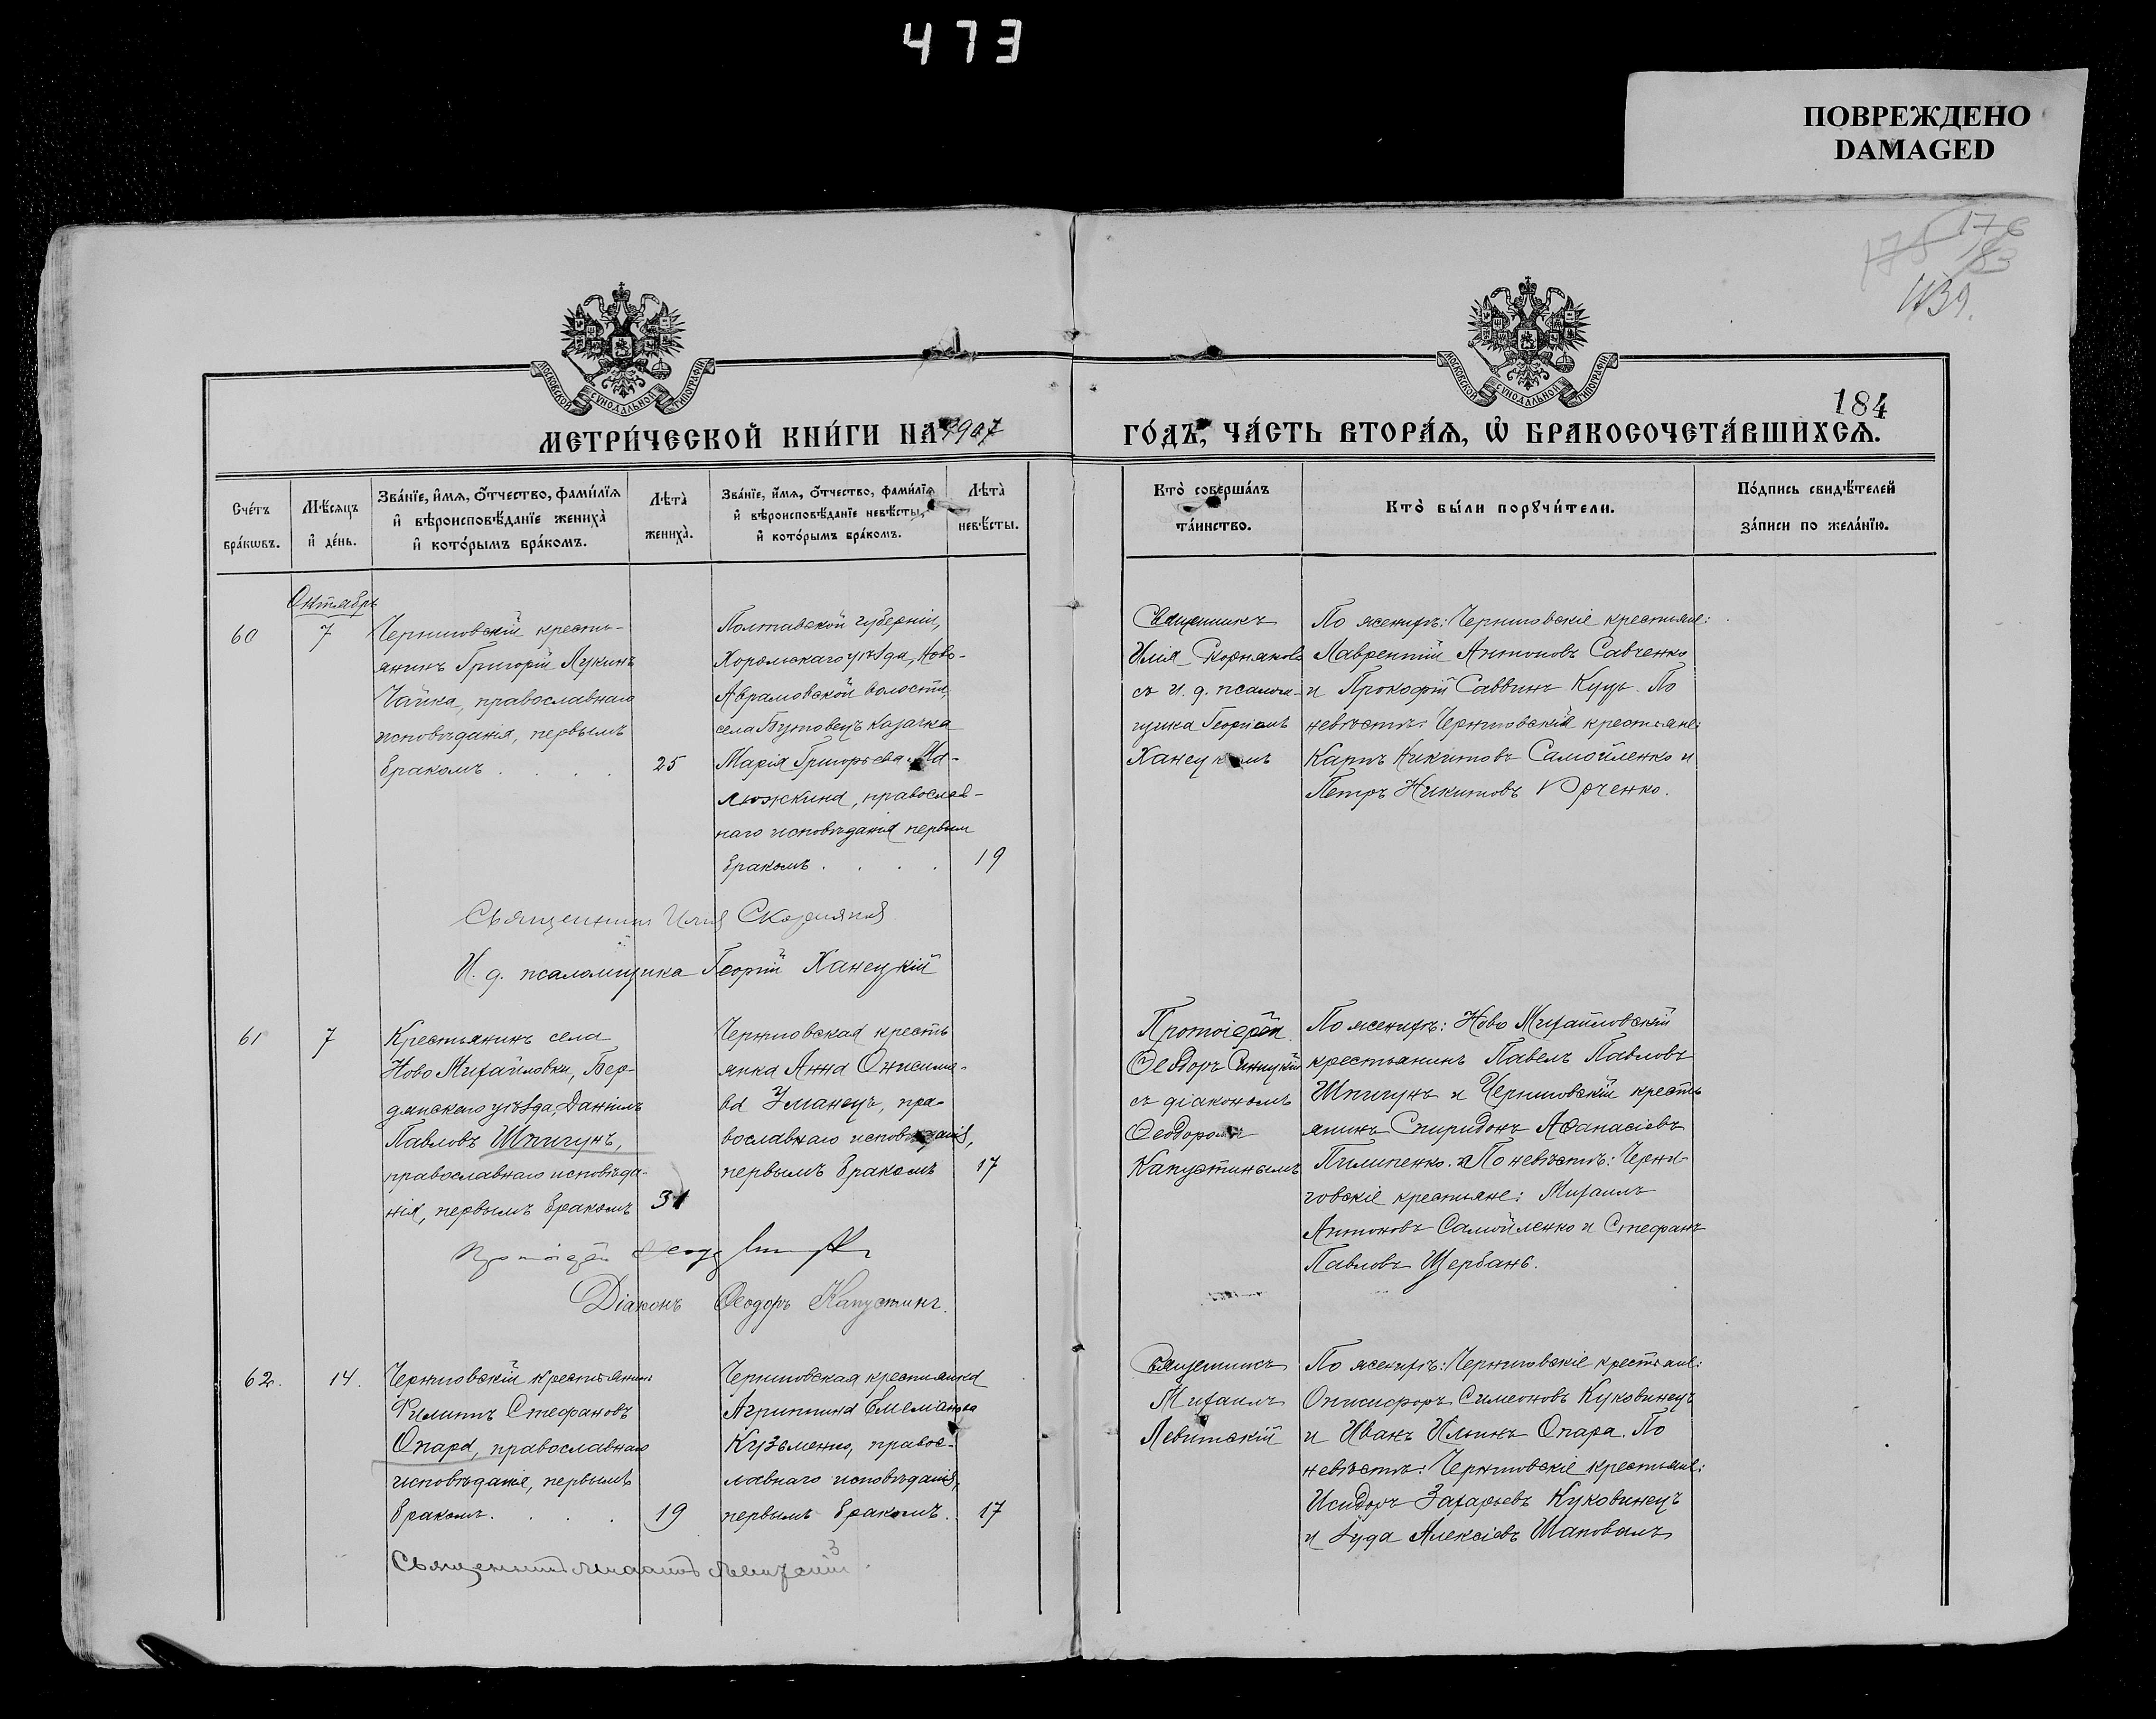 473
ПОВРЕЖДЕНО
DAMAGED
176
175 183
1139.
МОСКОВСКОЙ СѴНОДАЛЬНОЙ ТИПОГРАФІИ
МОСКОВСКОЙ СѴНОДАЛЬНОЙ ТИПОГРАФІИ
184
МЕТРИ́ЧЕСКОЙ КНИ́ГИ НА 1907
ГО́ДЪ, ЧА́СТЬ ВТОРА́Ѧ, Ѡ БРАКОСОЧЕТА́ВШИХСѦ.
Сче́тъ
бра́кѡвъ.
Мѣ́сѧцъ
и҆ де́нь.
Зва́нїе, и҆́мѧ, ѻ҆́тчество, фами́лїѧ
и҆ вѣроисповѣ́данїе жениха̀
и҆ кото́рымъ бра́комъ.
Лѣта̀
жениха̀.
Зва́нїе, и҆́мѧ, ѻ҆́тчество, фами́лїѧ
и҆ вѣроисповѣ́данїе невѣ́сты,
и҆ кото́рымъ бра́комъ.
Лѣта̀
невѣ́сты.
Кто̀ соверша́лъ
та́инство.
Кто̀ бы́ли порꙋчи́тели.
По́дпись свидѣ́телей
за́писи по жела́нїю.
Октябрь
60
7
Черниговскій кресть-
янинъ Григорій Лукинъ
Чайка, православнаго
исповѣданія, первымъ
бракомъ . . . .
25
Полтавской губерніи,
Хорольскаго уѣзда, Ново-
Аврамовской волости,
села Бутовецъ казачка
Марія Григорьева Ма-
люжкина, православ-
наго исповѣданія первым
бракомъ . . . .
19
Священникъ
Илія Скорняковъ
съ и. д. псалом-
щика Георгіемъ
Ханецкимъ
По женихѣ: Черниговскіе крестьяне:
Лаврентій Антоновъ Савченко
и Прокофій Саввинъ Куць. По
невѣстѣ: Черниговскіе крестьяне:
Карпъ Никитовъ Самойленко и
Петръ Никитовъ Юрченко.
Священникъ Илія Скорняковъ
И. д. псаломщика Георгій Ханецкій
61
7
Крестьянинъ села
Ново Михайловки, Бер-
дянскаго уѣзда, Даніилъ
Павловъ Шпигунъ,
православнаго исповѣда-
нія, первымъ бракомъ
31
Черниговская кресть
янка Анна Онисимо-
ва Уманецъ, пра-
вославнаго исповѣданія,
первымъ бракомъ
17
Протоіерей
Ѳеодоръ Синицкій
съ діакономъ
Ѳеодоромъ
Капустинымъ
По женихѣ: Ново Михайловскій
крестьянинъ Павелъ Павловъ
Шпигунъ и Черниговскій кресть
янинъ Спиридонъ Аѳанасіевъ
Пилипенко. По невѣстѣ: Черни-
говскіе крестьяне: Михаилъ
Антоновъ Самойленко и Стефанъ
Павловъ Щербань.
Протоіерей
Діаконъ Ѳеодоръ Капустинъ.
62.
14.
Черниговскій крестьянинъ
Филиппъ Стефановъ
Опара, православнаго
исповѣданія, первымъ
бракомъ. . . .
19
Черниговская крестьянка
Агриппина Емельянова
Кузьменко, правос-
лавнаго исповѣданія,
первымъ бракомъ.
17
Священникъ
Михаилъ
Левитскій
По женихѣ: Черниговскіе крестьяне:
Онисифоръ Симеоновъ Куковинецъ
и Иванъ Ильинъ Опара. По
невѣстѣ: Черниговскіе крестьяне:
Исидоръ Захарьевъ Куковинецъ
и Іуда Алексіевъ Шаповалъ
Священникъ Михаилъ Левитскій